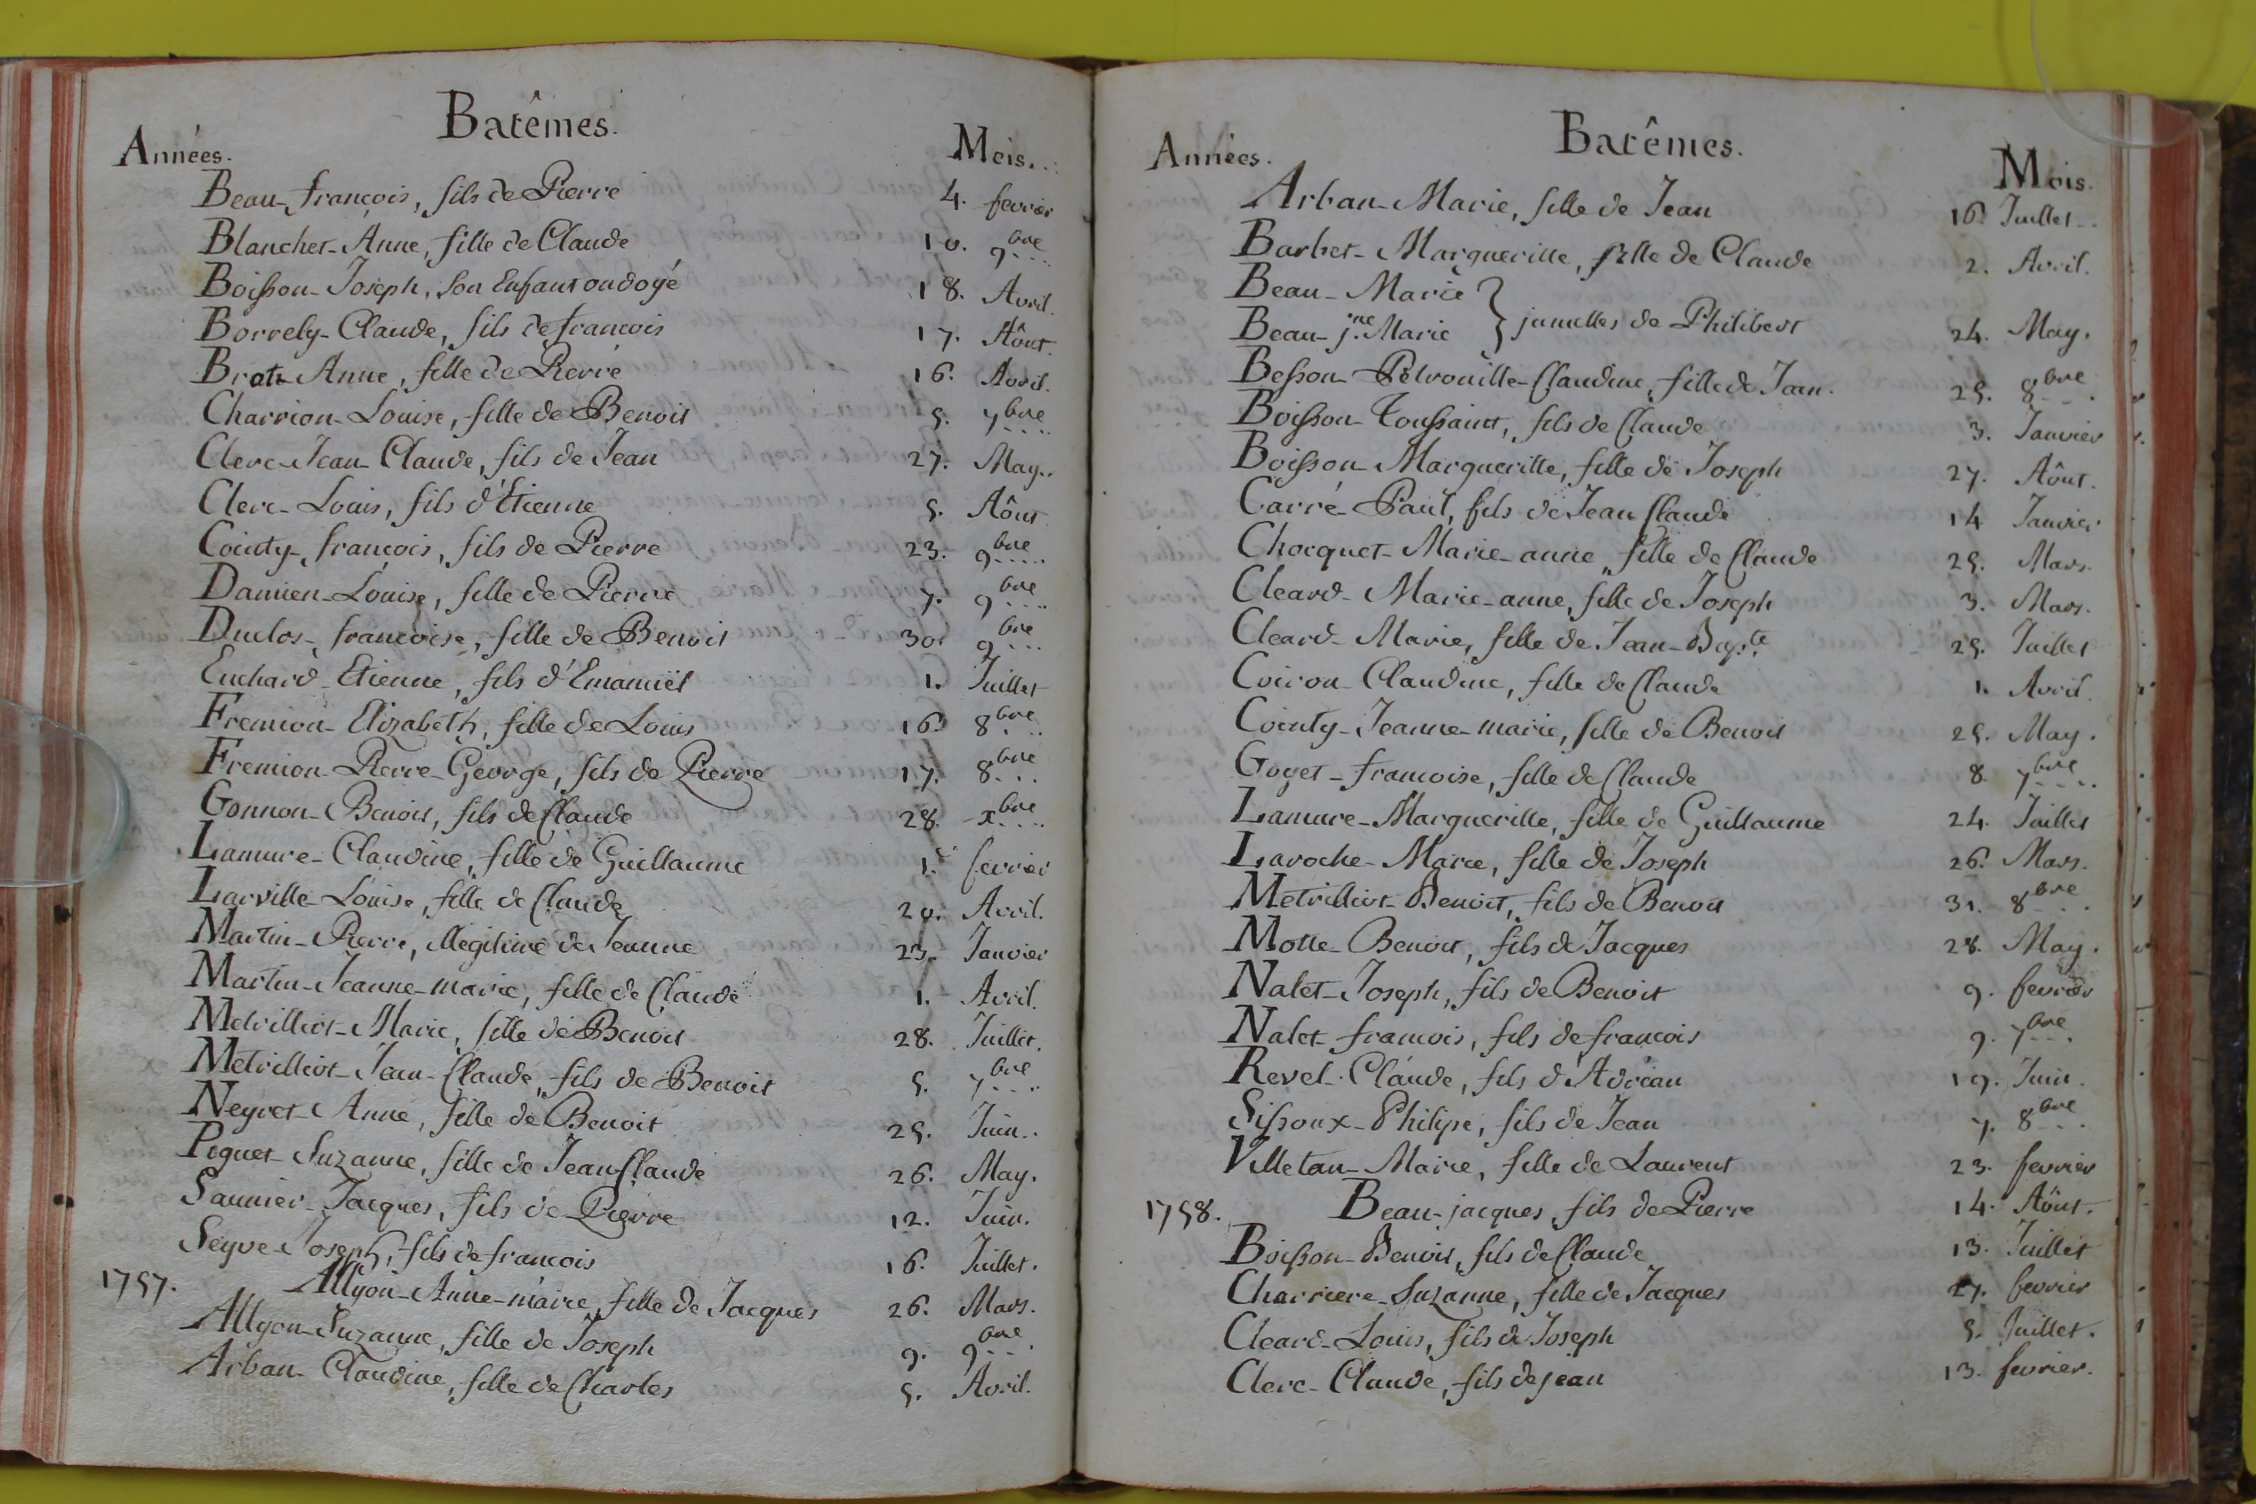 Batêmes.
Années. Mois.
Beau-françois, fils de Pierre 4. fevrier
Blanchet-Anne, fille de Claude 10. 9bre
Boisson-Joseph, son Enfant ondoyé 18. Avril.
Borrely-Claude, fils de françois 17. Aôut.
Brot-Anne, fille de Pierre 16. Avril.
Charrion-Louise, fille de Benoit 5. 7bre
Clerc-Jean-Claude, fils de Jean 27. May.
Clerc-Louis, fils d'Etienne 5. Aôut
Cointy-françois, fils de Pierre 23. 9bre
Damien-Louise, fille de Pierre 7. 9bre
Duclos-francoise, fille de Benoit 30. 9bre
Euchard-Etienne, fils d'Emanuël 1. Juillet
Fremion-Elizabeth, fille de Louis 16. 8bre
Fremion-Pierre-George, fils de Pierre 17. 8bre
Gonnon-Benoit, fils de Claude 28. xbre
Lamure-Claudine, fille de Guillaume 1. fevrier
Larville-Louise, fille de Claude 20. Avril.
Martin-Pierre, illegitime de Jeanne 23. Janvier
Martin-Jeanne-marie, fille de Claude 1. Avril.
Metrilliot-Marie, fille de Benoit 28. Juillet.
Metrilliot-Jean-Claude, fils de Benoit 5. 7bre
Neyret-Anne, fille de Benoit 25. Juin.
Piquet-Suzanne, fille de Jean Claude 26. May.
Saunier-Jacques, fils de Pierre 12. Juin.
Seyve-Joseph, fils de francois 16. Juillet.
1757. Allyon-Anne-marie, fille de Jacques 26. Mars.
Allyon-Suzanne, fille de Joseph 9. 9bre
Arban-Claudine, fille de Charles 5. Avril.
Batêmes.
Années. Mois.
Arban-Marie, fille de Jean 16. Juillet.
Barbet-Marguerille, fille de Claude 2. Avril.
Beau-Marie
Beau-jne Marie } jumelles de Philibert 24. May.
Besson-Pétronille-Claudine, fille de Jean. 25. 8bre
Boisson-Toussaint, fils de Claude 3. Janvier
Boisson-Marguerille, fille de Joseph 27. Aôut.
Carré-Paul, fils de Jean Claude 14 Janvier
Chocquet-Marie-anne, fille de Claude 25. Mars.
Cleard-Marie-anne, fille de Joseph 3. Mars.
Cleard-Marie, fille de Jean-Bapte. 25. Juillet
Coiron-Claudine, fille de Claude 1. Avril.
Cointy-Jeanne-marie, fille de Benoit 25. May.
Goyet-francoise, fille de Claude 8 7bre
Lamure-Marguerille, fille de Guillaume 24. Juillet
Laroche-Marie, fille de Joseph 26. Mars.
Metrilliot-Benoit, fils de Benoit 31. 8bre
Motte-Benoit, fils de Jacques 28. May.
Nalet-Joseph, fils de Benoit 9. fevrier
Nalet-francois, fils de francois 9. 7bre
Revel-Claude, fils d'Adrian 19. Juin.
Sissoux-Philipe, fils de Jean 7. 8bre
Villetan-Marie, fille de Laurent 23. fevrier
1758. Beau-jacques, fils de Pierre 14. Aôut.
Boisson-Benoit, fils de Claude 13. Juillet
Charriere-Suzanne, fille de Jacques 27. fevrier
Cleard-Louis, fils de Joseph 5. Juillet.
Clerc-Claude, fils de jean 13. fevrier.